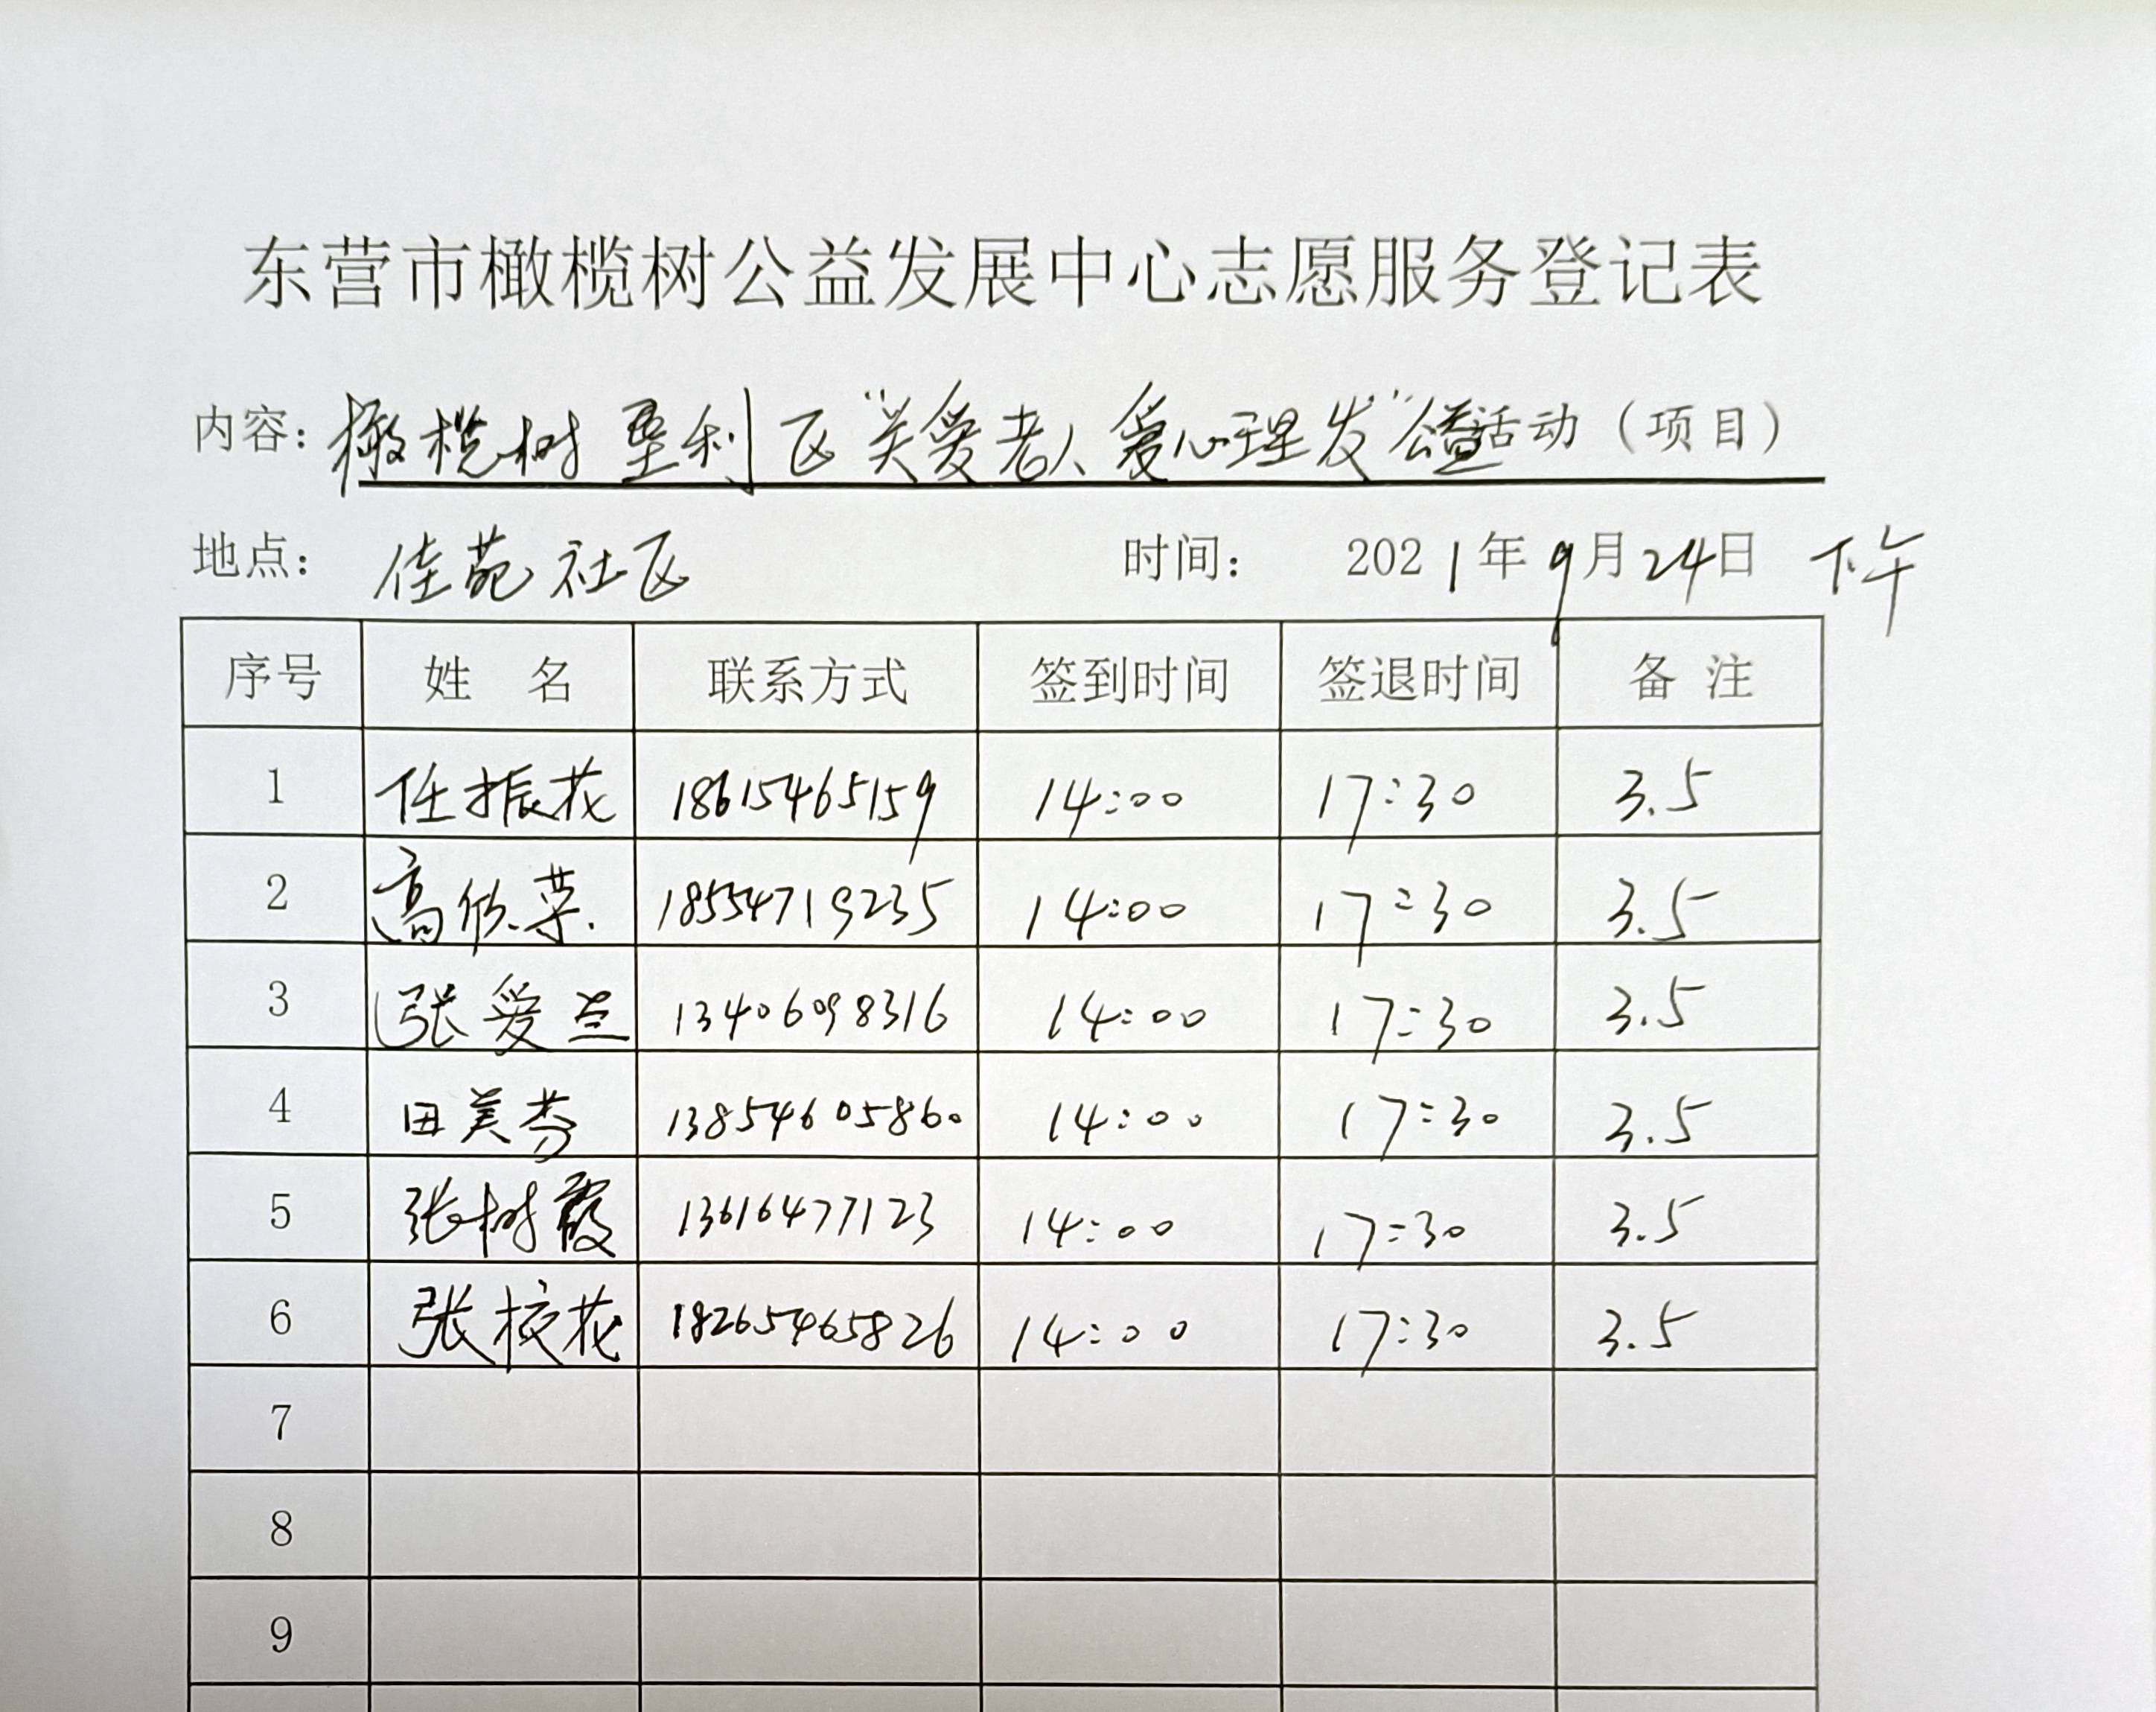 东营市橄榄树公益发展中心志愿服务登记表
内容：橄榄树垦利区“关爱老人爱心理发”公益活动（项目）
地点： 佳苑社区 时间： 2021年9月24日 下午
序号 姓 名 联系方式 签到时间 签退时间 备 注
1 任振花 18615465159 14:00 17:30 3.5
2 高欣荣 18554719235 14:00 17:30 3.5
3 张爱兰 13406098316 14:00 17:30 3.5
4 田美芬 13854605860 14:00 17:30 3.5
5 张树霞 13616477123 14:00 17:30 3.5
6 张校花 18265465826 14:00 17:30 3.5
7
8
9